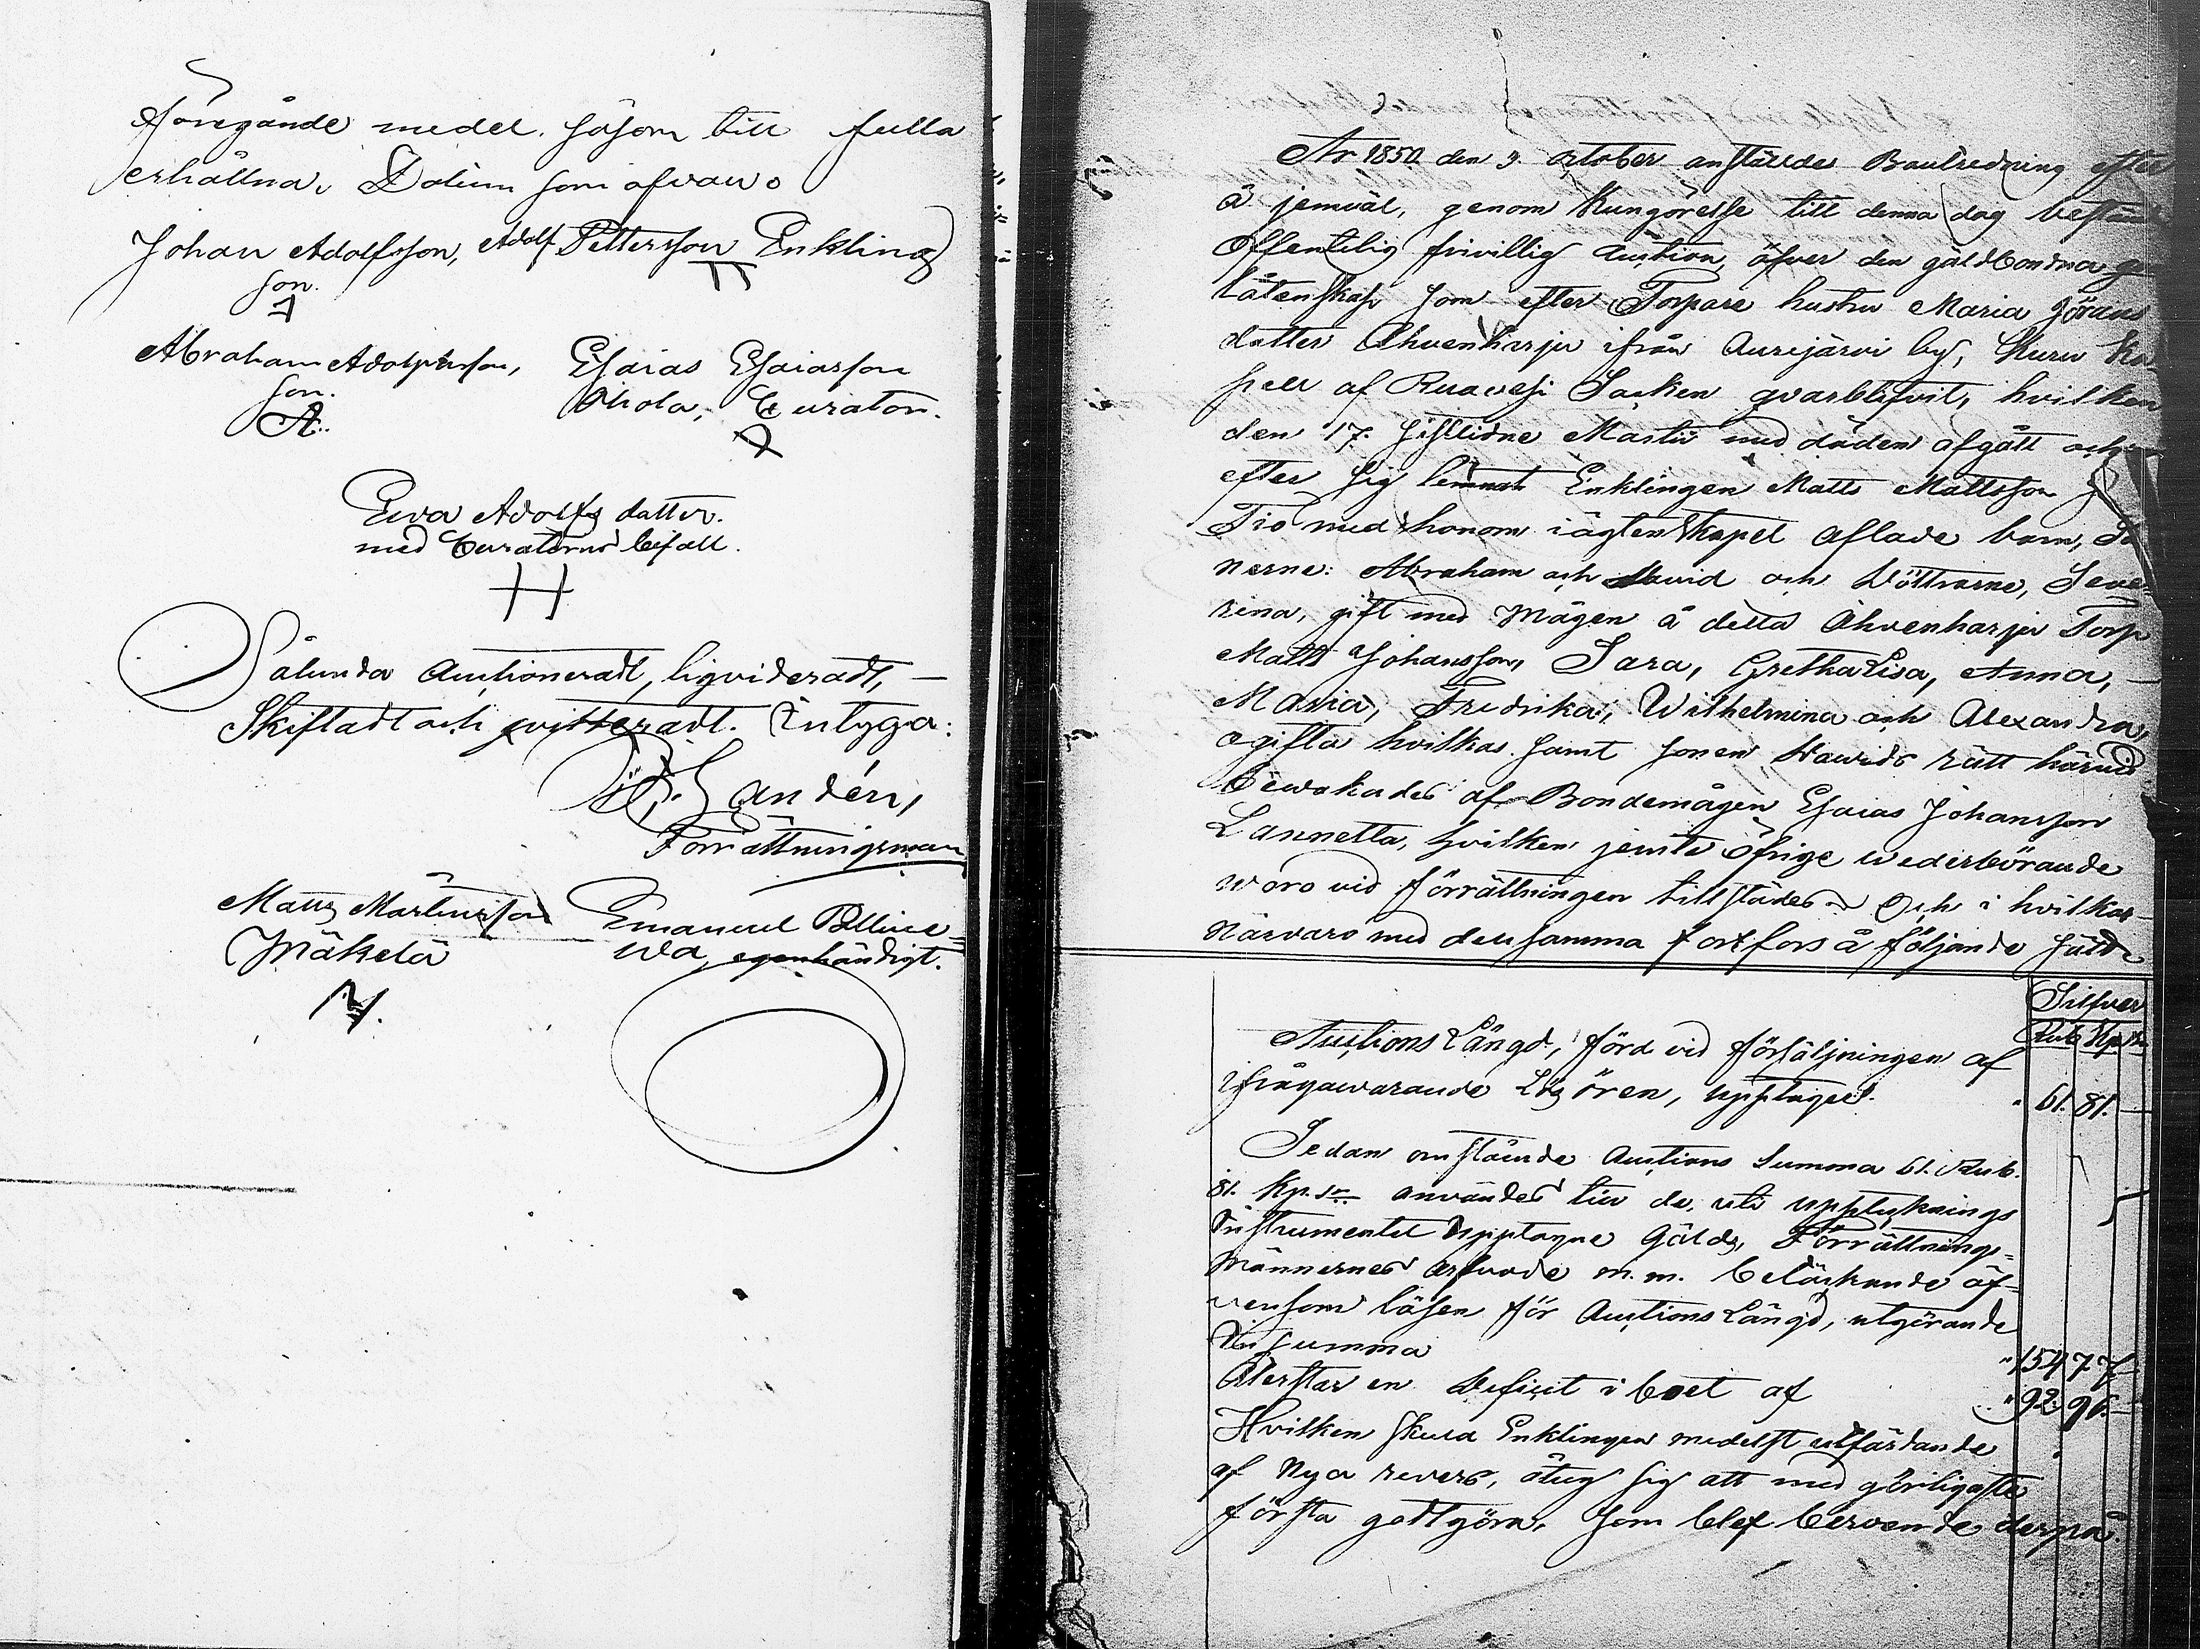 föregånde medel såsom till fulla
erhållna, Datum som ofvan.
Johan Adolfsson, Adolf Pettersson Enkling
son.
Abraham Adolphsson, Esaias Esaiasson
son. Ohola, Curator.
A.
Ewa Adolfs datter.
med Curatorns bifall.
H
Sålunda Auctioneradt, liqvideradt,
Skiftadt och qvitteradt. Intyga:
Sandén,
Förrättningsman
Matts Mårtensson Emanuel Pollice=
Mäkelä wa, egenhändigt.
År 1850 den 9. October anstäldes Boutredning efter
å jemväl, genom Kungörelse till denna dag bestämd
Offentelig frivillig Auction, öfver den gäldbondna
låtenskap som efter Torpare hustru Maria Görans
datter Ahvenharju ifrån Aurejärvi by, Kuru Ka-
pell af Ruovesi Socken qvarblifvit, hvilken
den 17. sistlidne Martii med döden afgått och
efter sig lemnat Enklingen Matts Mattsson
Tio med honom i ägtenskapet aflade barn, Sö
nerne: Abraham och David och Döttrarne, Seve-
rina, gift med Mågen å detta Ahvenharju Torp
Matts Johansson, Sara, Gretha Lisa, Anna,
Maria, Fredrika, Wilhelmina och Alexandra,
ogifta hvilkas samt sonen Davids rätt härvid
bewakades af Bondemågen Esaias Johansson
Lannetta, hvilken jemte öfrige wederbörande
woro vid förrättningen tillstädes och i hvilkas
Närvaro med densamma fortfors å följande sätt
Silfver
Rub Kp
Auctions Längd, förd vid försäljningen af
ifrågawarande Lös ören, upptager. 61. 81.
Sedan omstående Auctions Summa 61. Rub.
81. Kp. Sr användes till de, uti upptecknings
Instrumentet Upptagne Gälds, Förrättnings=
Männernes Arfvode m. m. belöpande äf-
vensom lösen för Auctions Längd, utgörande
In summa " 154 77
Återstår en deficit i boet af " 92. 96.
Hvilken skuld Enklingen medelst utfärdande
af Nya revers, åtog sig att med görligaste
första godtgöra, som blef beroende derpå.